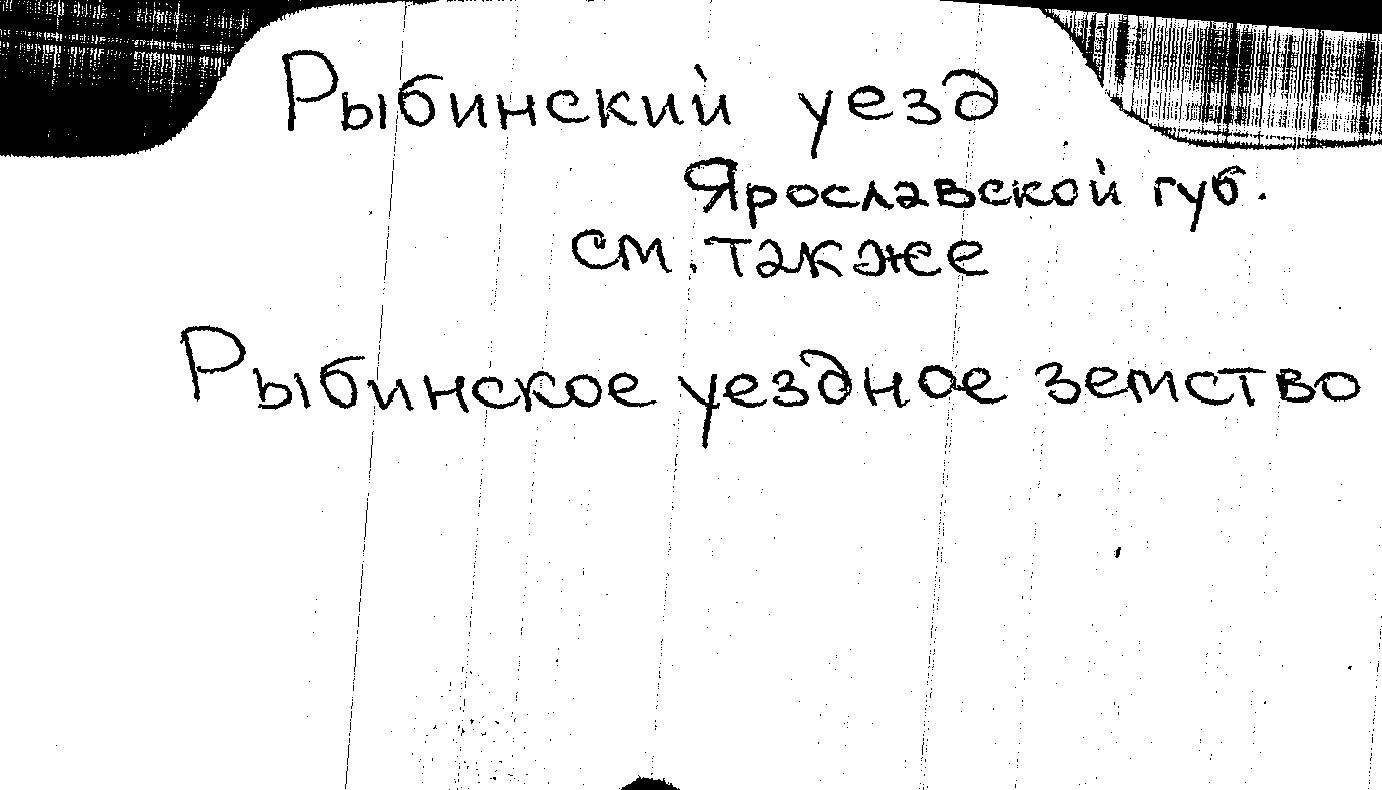 Рыбинский уезд
Ярославской губ.
см. также
Рыбинское уездное земство